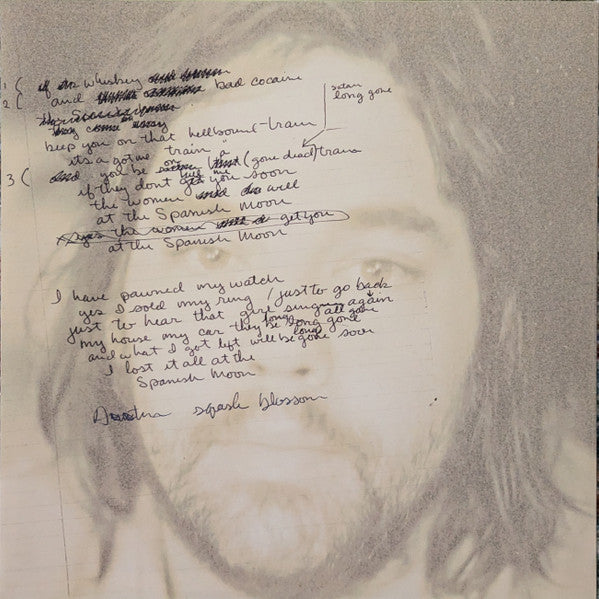 1 ( if its whiskey
2 ( and bad cocaine
they come
keep you on that hellbound-train
its a got me train a
satan
long gone
3 ( and you be on (gone dead) train
if they dont get you soon
the women will
at the Spanish moon
yes the women get you
at the Spanish Moon
I have pawned my watch
yes I sold my ring / just to go back
just to hear that girl sing again
my house my car they be long gone
long all gone
and what I got left will be gone soon
long
I lost it all at the
Spanish Moon
sqash blossom